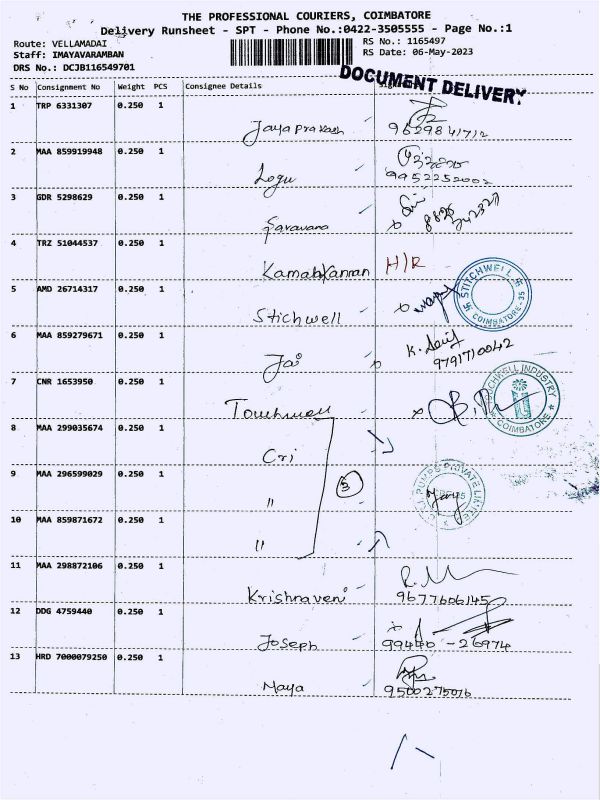 THE PROFESSIONAL COURIERS, COIMBATORE
Delivery Runsheet - SPT - Phone No.:0422-3505555 - Page No.:1
Route: VELLAMADAI
RS No.: 1165497
Staff: IMAYAVARAMBAN
RS Date: 06-May-2023
DRS No.: DCJB116549701
DOCUMENT DELIVERY
S No Consignment No Weight PCS Consignee Details
1 TRP 6331307 0.250 1
Jaya prakash 9629841712
2 MAA 859919948 0.250 1
Logu 9952252002
3 GDR 5298629 0.250 1
Saravana
4 TRZ 51044537 0.250 1
Kamalakannan H/R
5 AMD 26714317 0.250 1
Stichwell
STITCHWELL
COIMBATORE-35
6 MAA 859279671 0.250 1
Jai 9791710042
7 CNR 1653950 0.250 1
TOUCHWELL INDUSTRY
COIMBATORE
8 MAA 299035674 0.250 1
Cri
9 MAA 296599029 0.250 1
" 3
PUMPS PRIVATE LIMITED
10 MAA 859871672 0.250 1
"
11 MAA 298872106 0.250 1
Krishnaveni 9677606145
12 DDG 4759440 0.250 1
Joseph 99440 - 26974
13 HRD 7000079250 0.250 1
Maya 9500275076